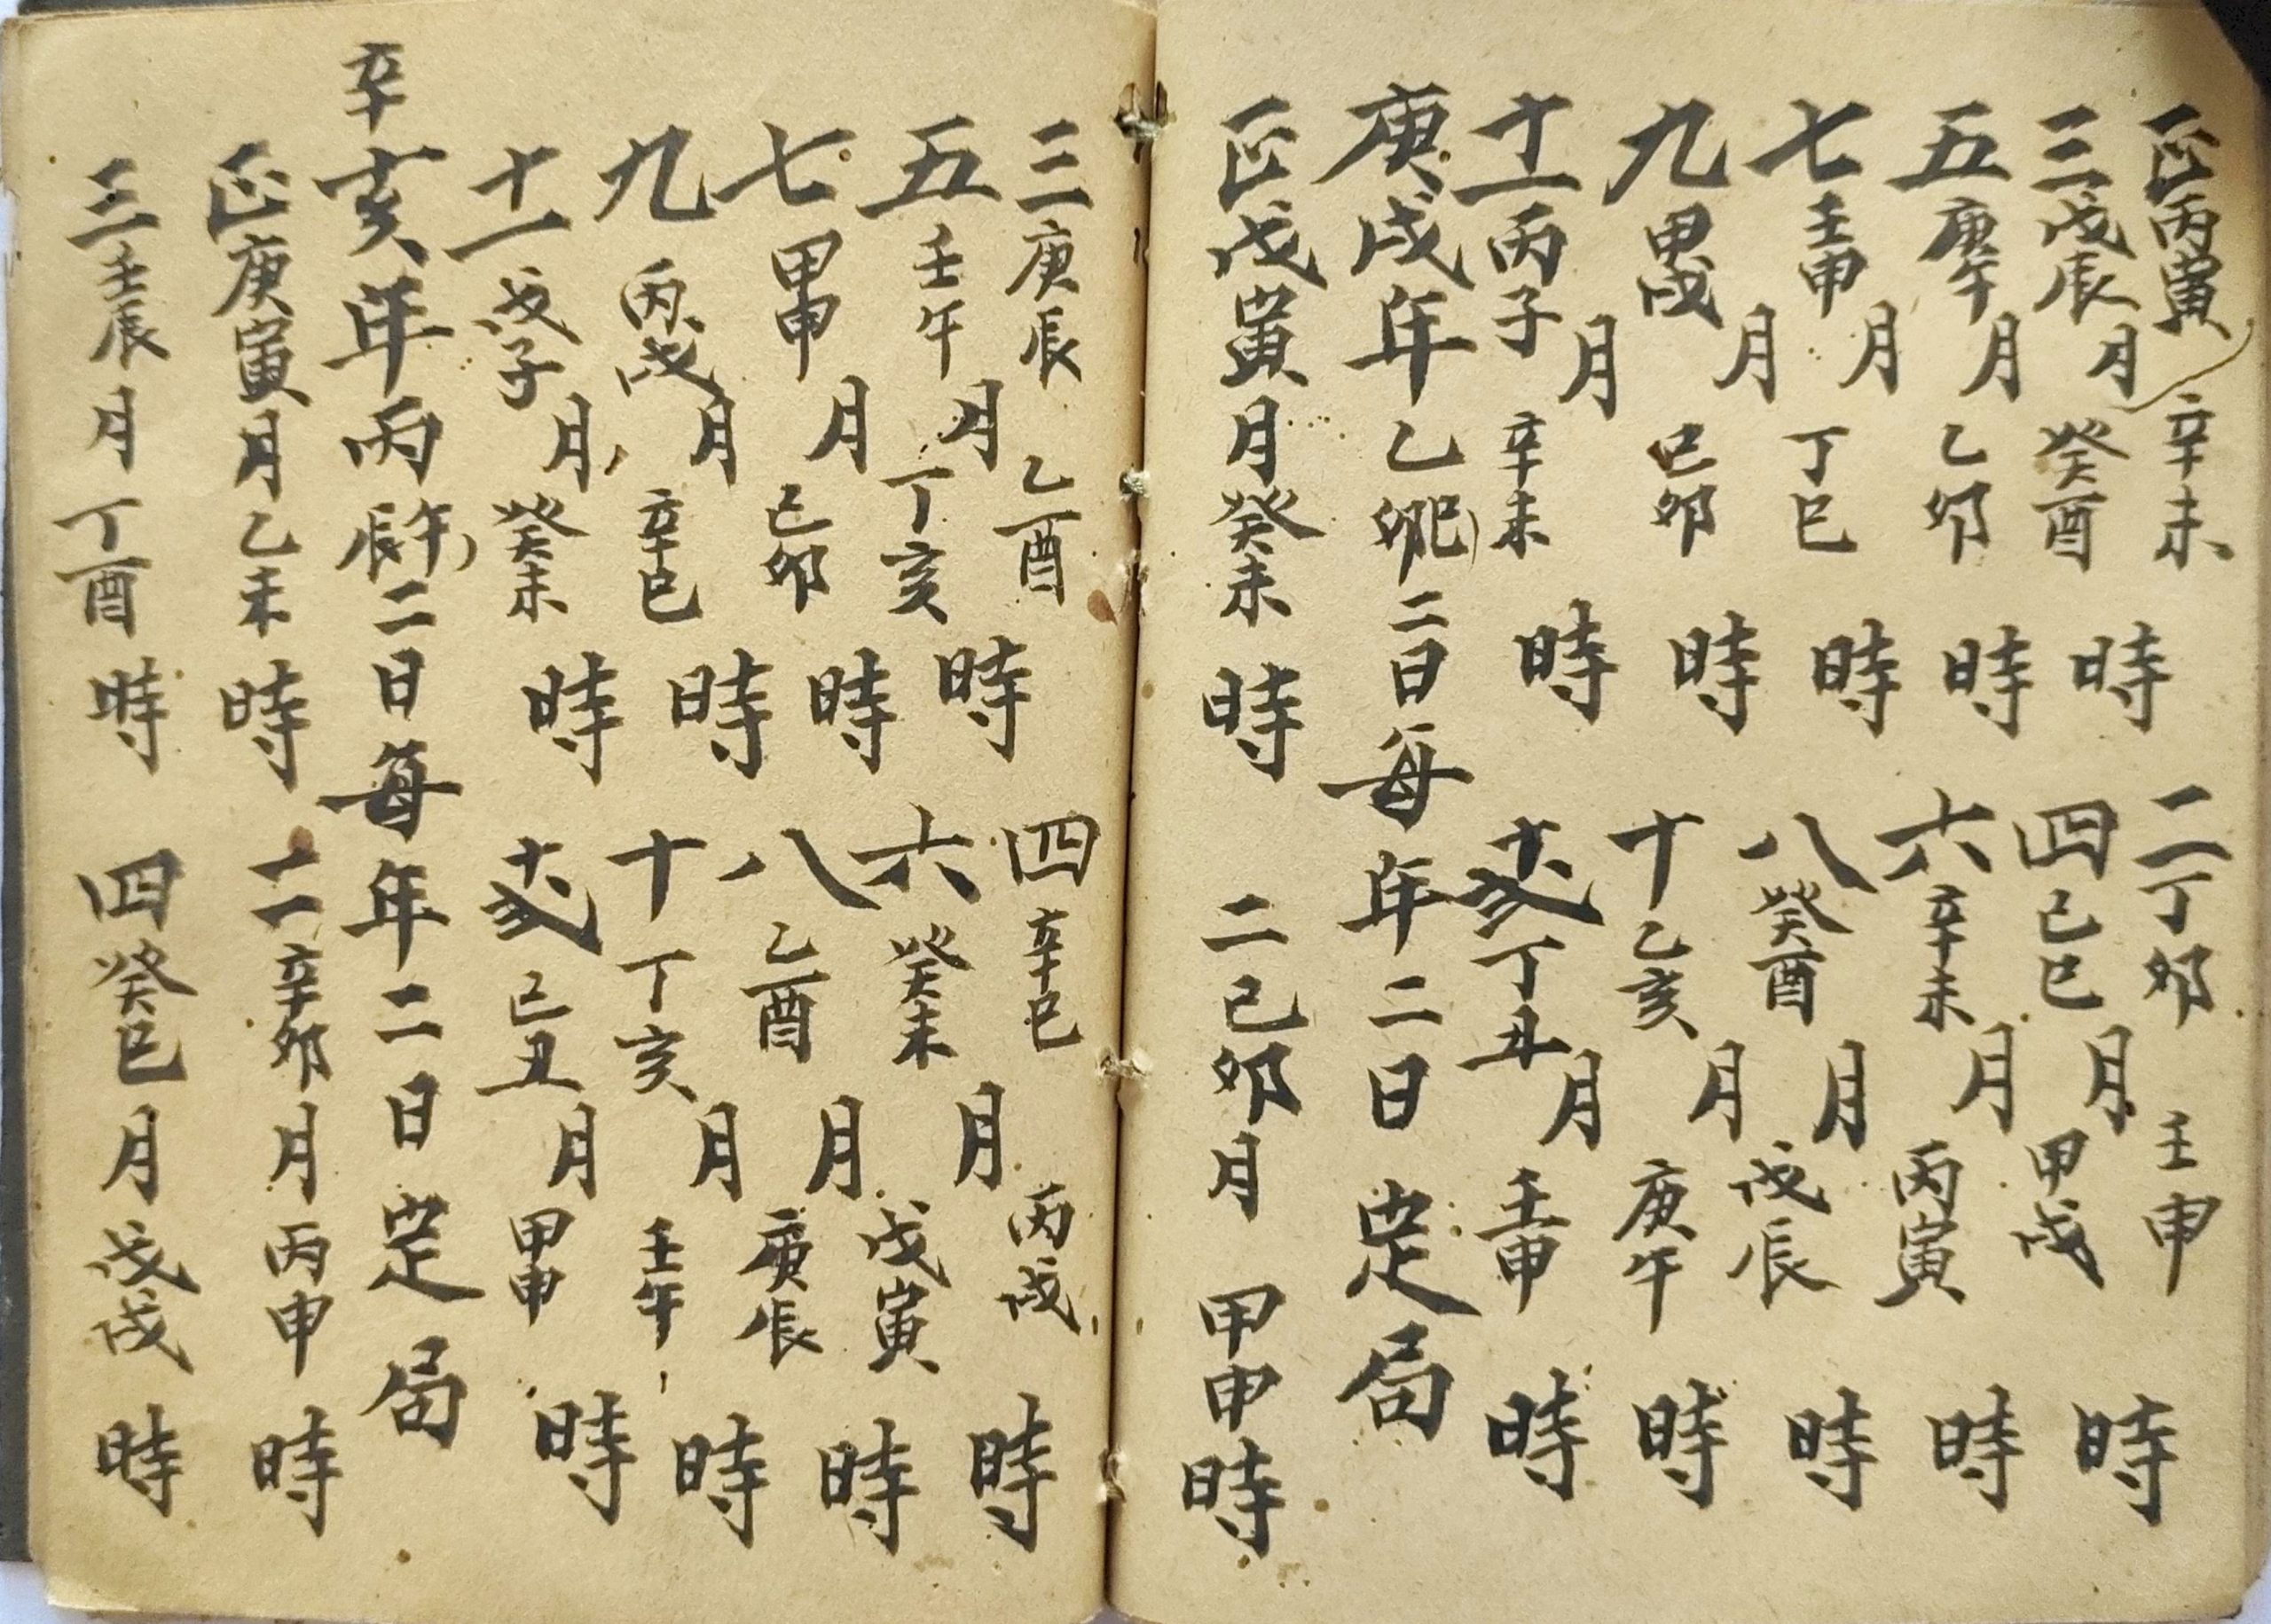 正丙寅 辛未 二丁卯 壬申
三戊辰月 癸酉時 四己巳月 甲戌時
五庚午月 乙卯時 六辛未月 丙寅時
七壬申月 丁巳時 八癸酉月 戊辰時
九甲戌月 己卯時 十乙亥月 庚午時
十一丙子月 辛未時 十二丁丑月 壬申時
庚戌年乙卯巳二日每年二日定局
正戊寅月癸未時 二己卯月甲申時
三庚辰 乙酉 四辛巳 丙戌
五壬午月 丁亥時 六癸未月 戊寅時
七甲申月 己卯時 八乙酉月 庚辰時
九丙戌月 辛巳時 十丁亥月 壬午時
十一戊子月 癸未時 己丑月 甲申時
辛亥年丙辰午二日每年二日定局
正庚寅月乙未時 二辛卯月丙申時
三壬辰月丁酉時 四癸巳月戊戌時